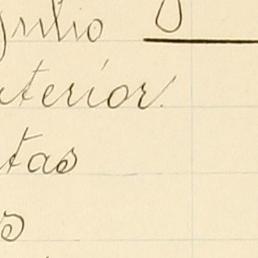 julio
terior.
tas
s